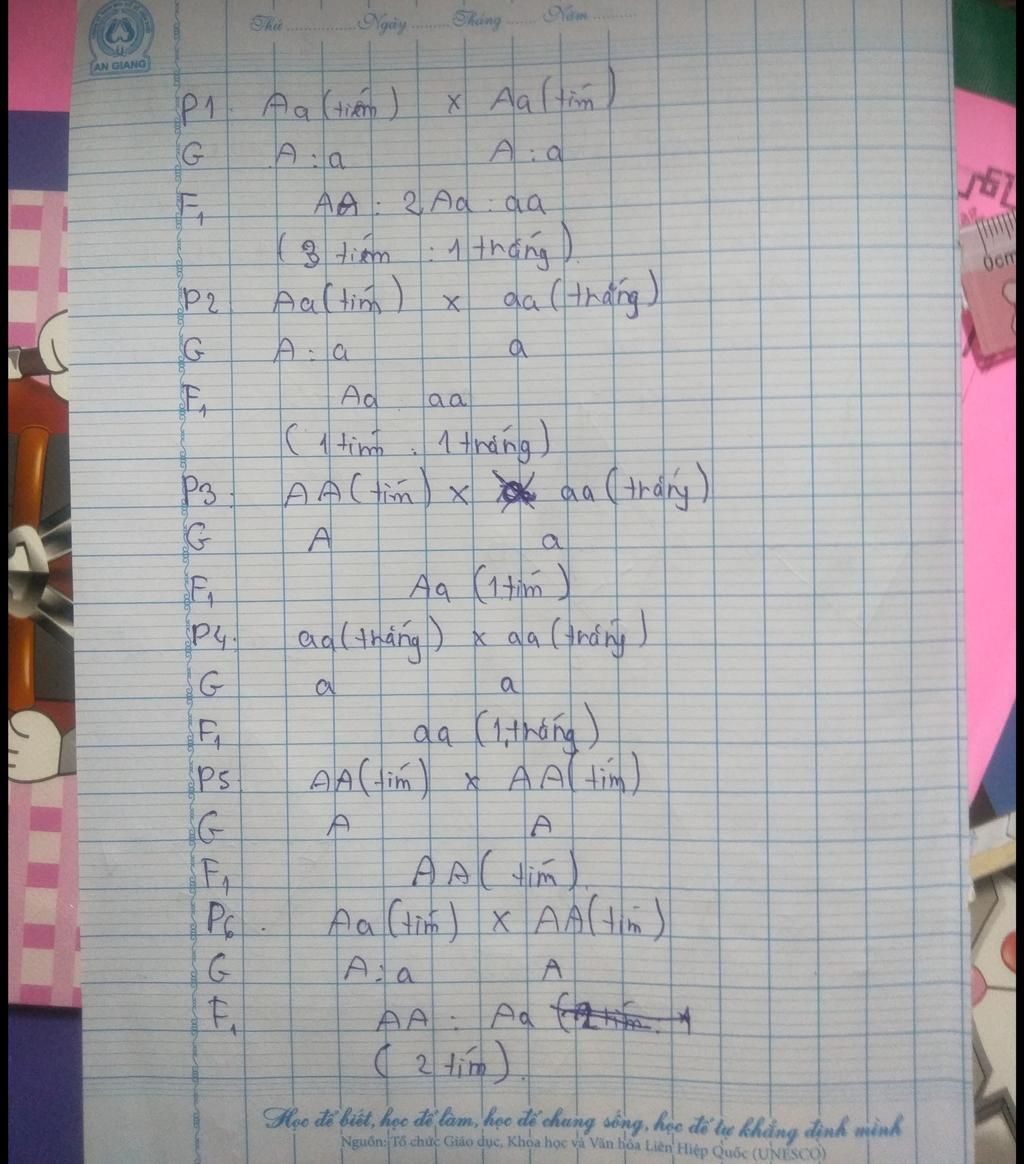 Thứ ............... Ngày ........ Tháng ...... Năm ..........
AN GIANG
P1. Aa (tiếm) x Aa (tím)
G A : a A : a
F1 AA : 2 Aa : aa
( 3 tiếm : 1 trắng).
P2 Aa (tím) x aa (trắng)
G A : a a
F1 Aa aa
( 1 tím : 1 trắng)
P3. AA (tím) x aa (trắng)
G A a
F1 Aa (1 tím)
P4. aa (trắng) x aa (trắng)
G a a
F1 aa (1 trắng)
P5 AA (tím) x AA (tím)
G A A
F1 AA ( tím).
P6. Aa (tím) x AA (tím)
G A : a A
F1 AA : Aa
( 2 tím).
Học để biết, học để làm, học để chung sống, học để tự khẳng định mình
Nguồn: Tổ chức Giáo dục, Khoa học và Văn hóa Liên Hiệp Quốc (UNESCO)
0cm